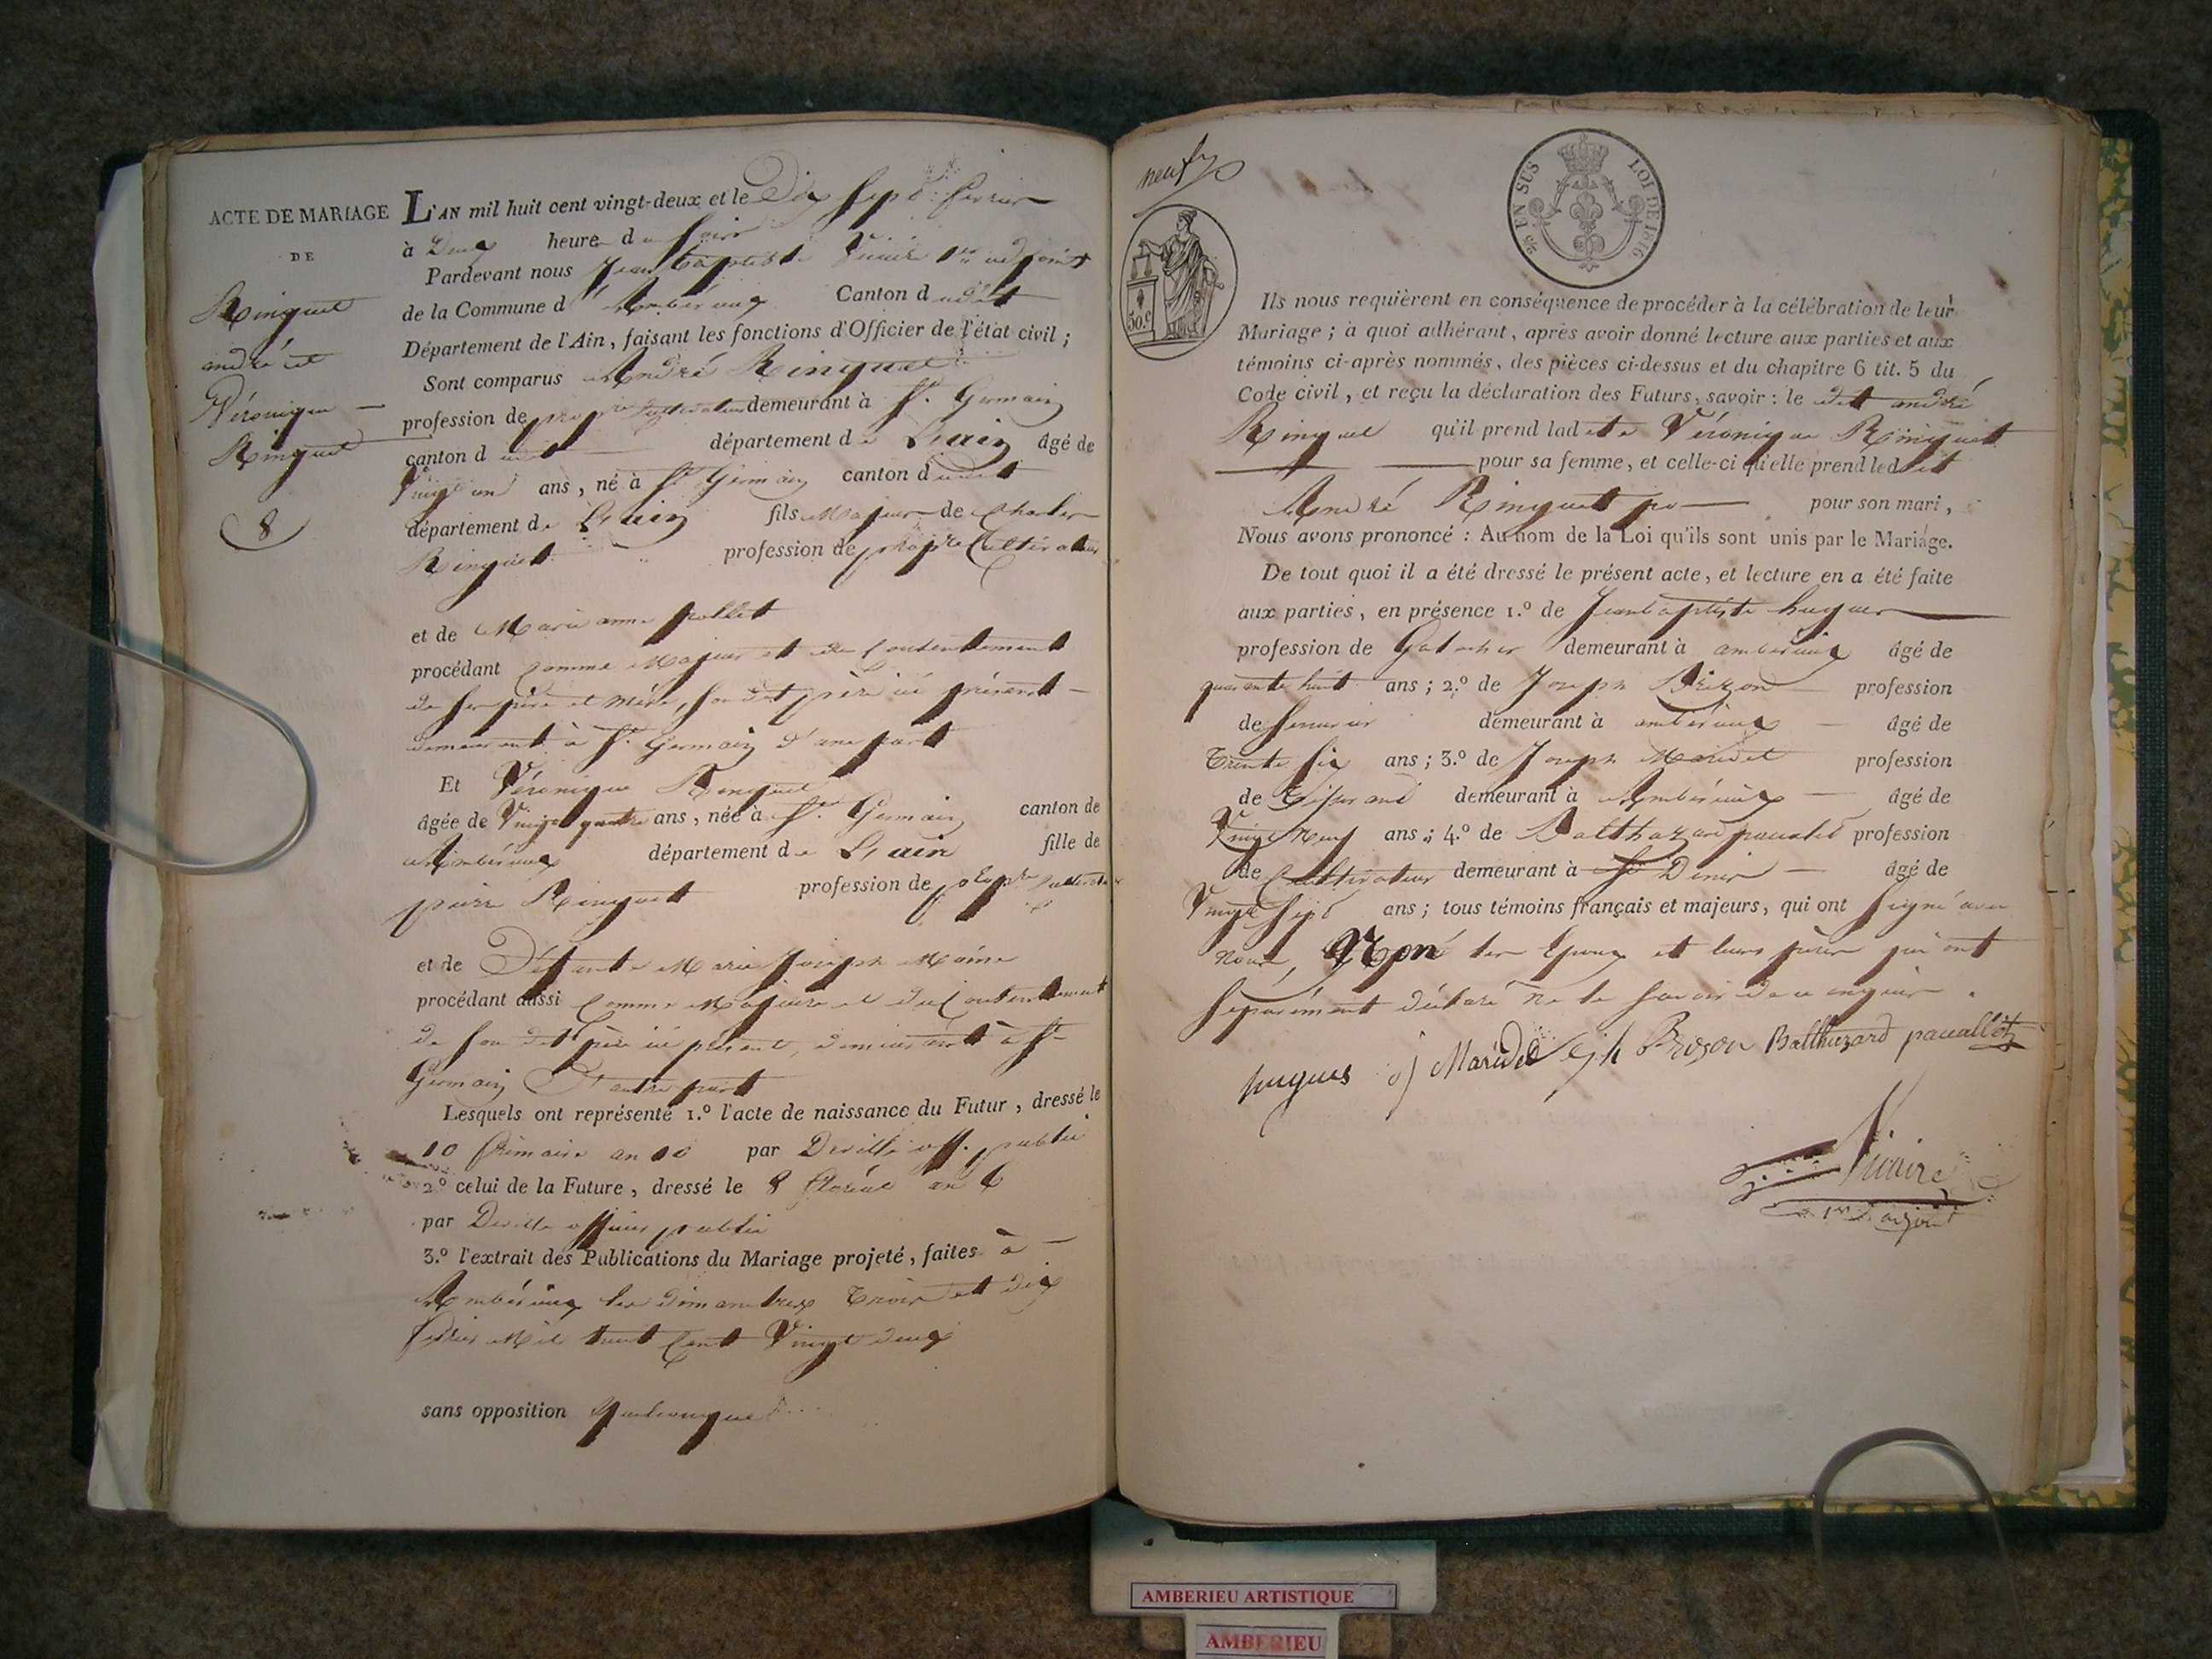 ACTE DE MARIAGE
DE
Ringuet
andré et
Véronique
Ringuet
8
L'AN mil huit cent vingt-deux et le Dix Sept fevrier
à Deux heure du Soir
Pardevant nous Jean baptiste Vicaire 1er adjoint
de la Commune d'Ambérieux Canton dudit
Département de l'Ain, faisant les fonctions d'Officier de l'état civil ;
Sont comparus André Ringuet
profession de propre Cultivateur demeurant à St Germain
canton dudit département de L'ain âgé de
Vingt un ans, né à St Germain canton dudit
département de L'ain fils Majeur de Charles
Ringuet profession de propre Cultivateur
et de Marie anne pollet
procédant Comme Majeur et du Contentement
de Ses père et mère, Son dit père ici présent
demeurant à St Germain d'une part
Et Véronique Ringuet
âgée de Vingt quatre ans, née à St Germain canton de
Ambérieux département de L'ain fille de
pierre Ringuet profession de propre Cultivateur
et de Défunte Marie Joseph
procédant aussi Comme Majeure et du Contentement
de Son dit père ici présent, demeurant à St
Germain D'autre part
Lesquels ont représenté 1.º l'acte de naissance du Futur, dressé le
10 frimaire an 10 par Deville off. public
2º celui de la Future, dressé le 8 floréal an 6
par Deville officier public
3.º l'extrait des Publications du Mariage projeté, faites à
Ambérieux les dimanches Trois et dix
fevrier Mil huit Cent Vingt deux
sans opposition quelconque
neuf
50.c
EN SUS
LOI DE 1816
Ils nous requièrent en conséquence de procéder à la célébration de leur
Mariage ; à quoi adhérant, après avoir donné lecture aux parties et aux
témoins ci-après nommés, des pièces ci-dessus et du chapitre 6 tit. 5 du
Code civil, et reçu la déclaration des Futurs, savoir : le dit andré
Ringuet qu'il prend ladite Véronique Ringuet
pour sa femme, et celle-ci qu'elle prend ledit
André Ringuet po pour son mari,
Nous avons prononcé : Au nom de la Loi qu'ils sont unis par le Mariage.
De tout quoi il a été dressé le présent acte, et lecture en a été faite
aux parties, en présence 1.º de Jean baptiste hugues
profession de demeurant à ambérieux âgé de
quarante huit ans ; 2.º de Joseph Brizon profession
de Serrurier demeurant à ambérieux âgé de
Trente Six ans ; 3.º de Joseph Maridet profession
de Tisserand demeurant à Ambérieux âgé de
Vingt Neuf ans ; 4.º de Balthazard pauallet profession
de Cultivateur demeurant à St Denis âgé de
Vingt Sept ans ; tous témoins français et majeurs, qui ont Signé avec
nous, Non les Epoux et leurs pères qui ont
Séparément déclaré ne le Savoir de ce enquis.
hugues j Maridet jh Brizon Balthazard pauallet
Vicaire
1er adjoint
AMBERIEU ARTISTIQUE
AMBERIEU